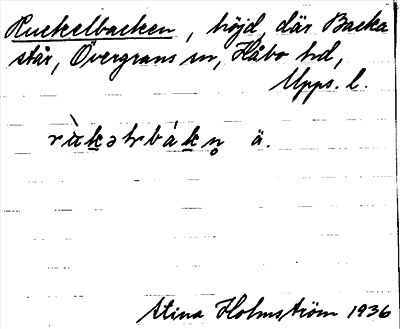 Ruckelbacken, höjd, där Backa
står, Övergrans sn, Håbo hd,
Upps. l.
rùkəɫbákn̥ ä.
Stina Holmström 1936